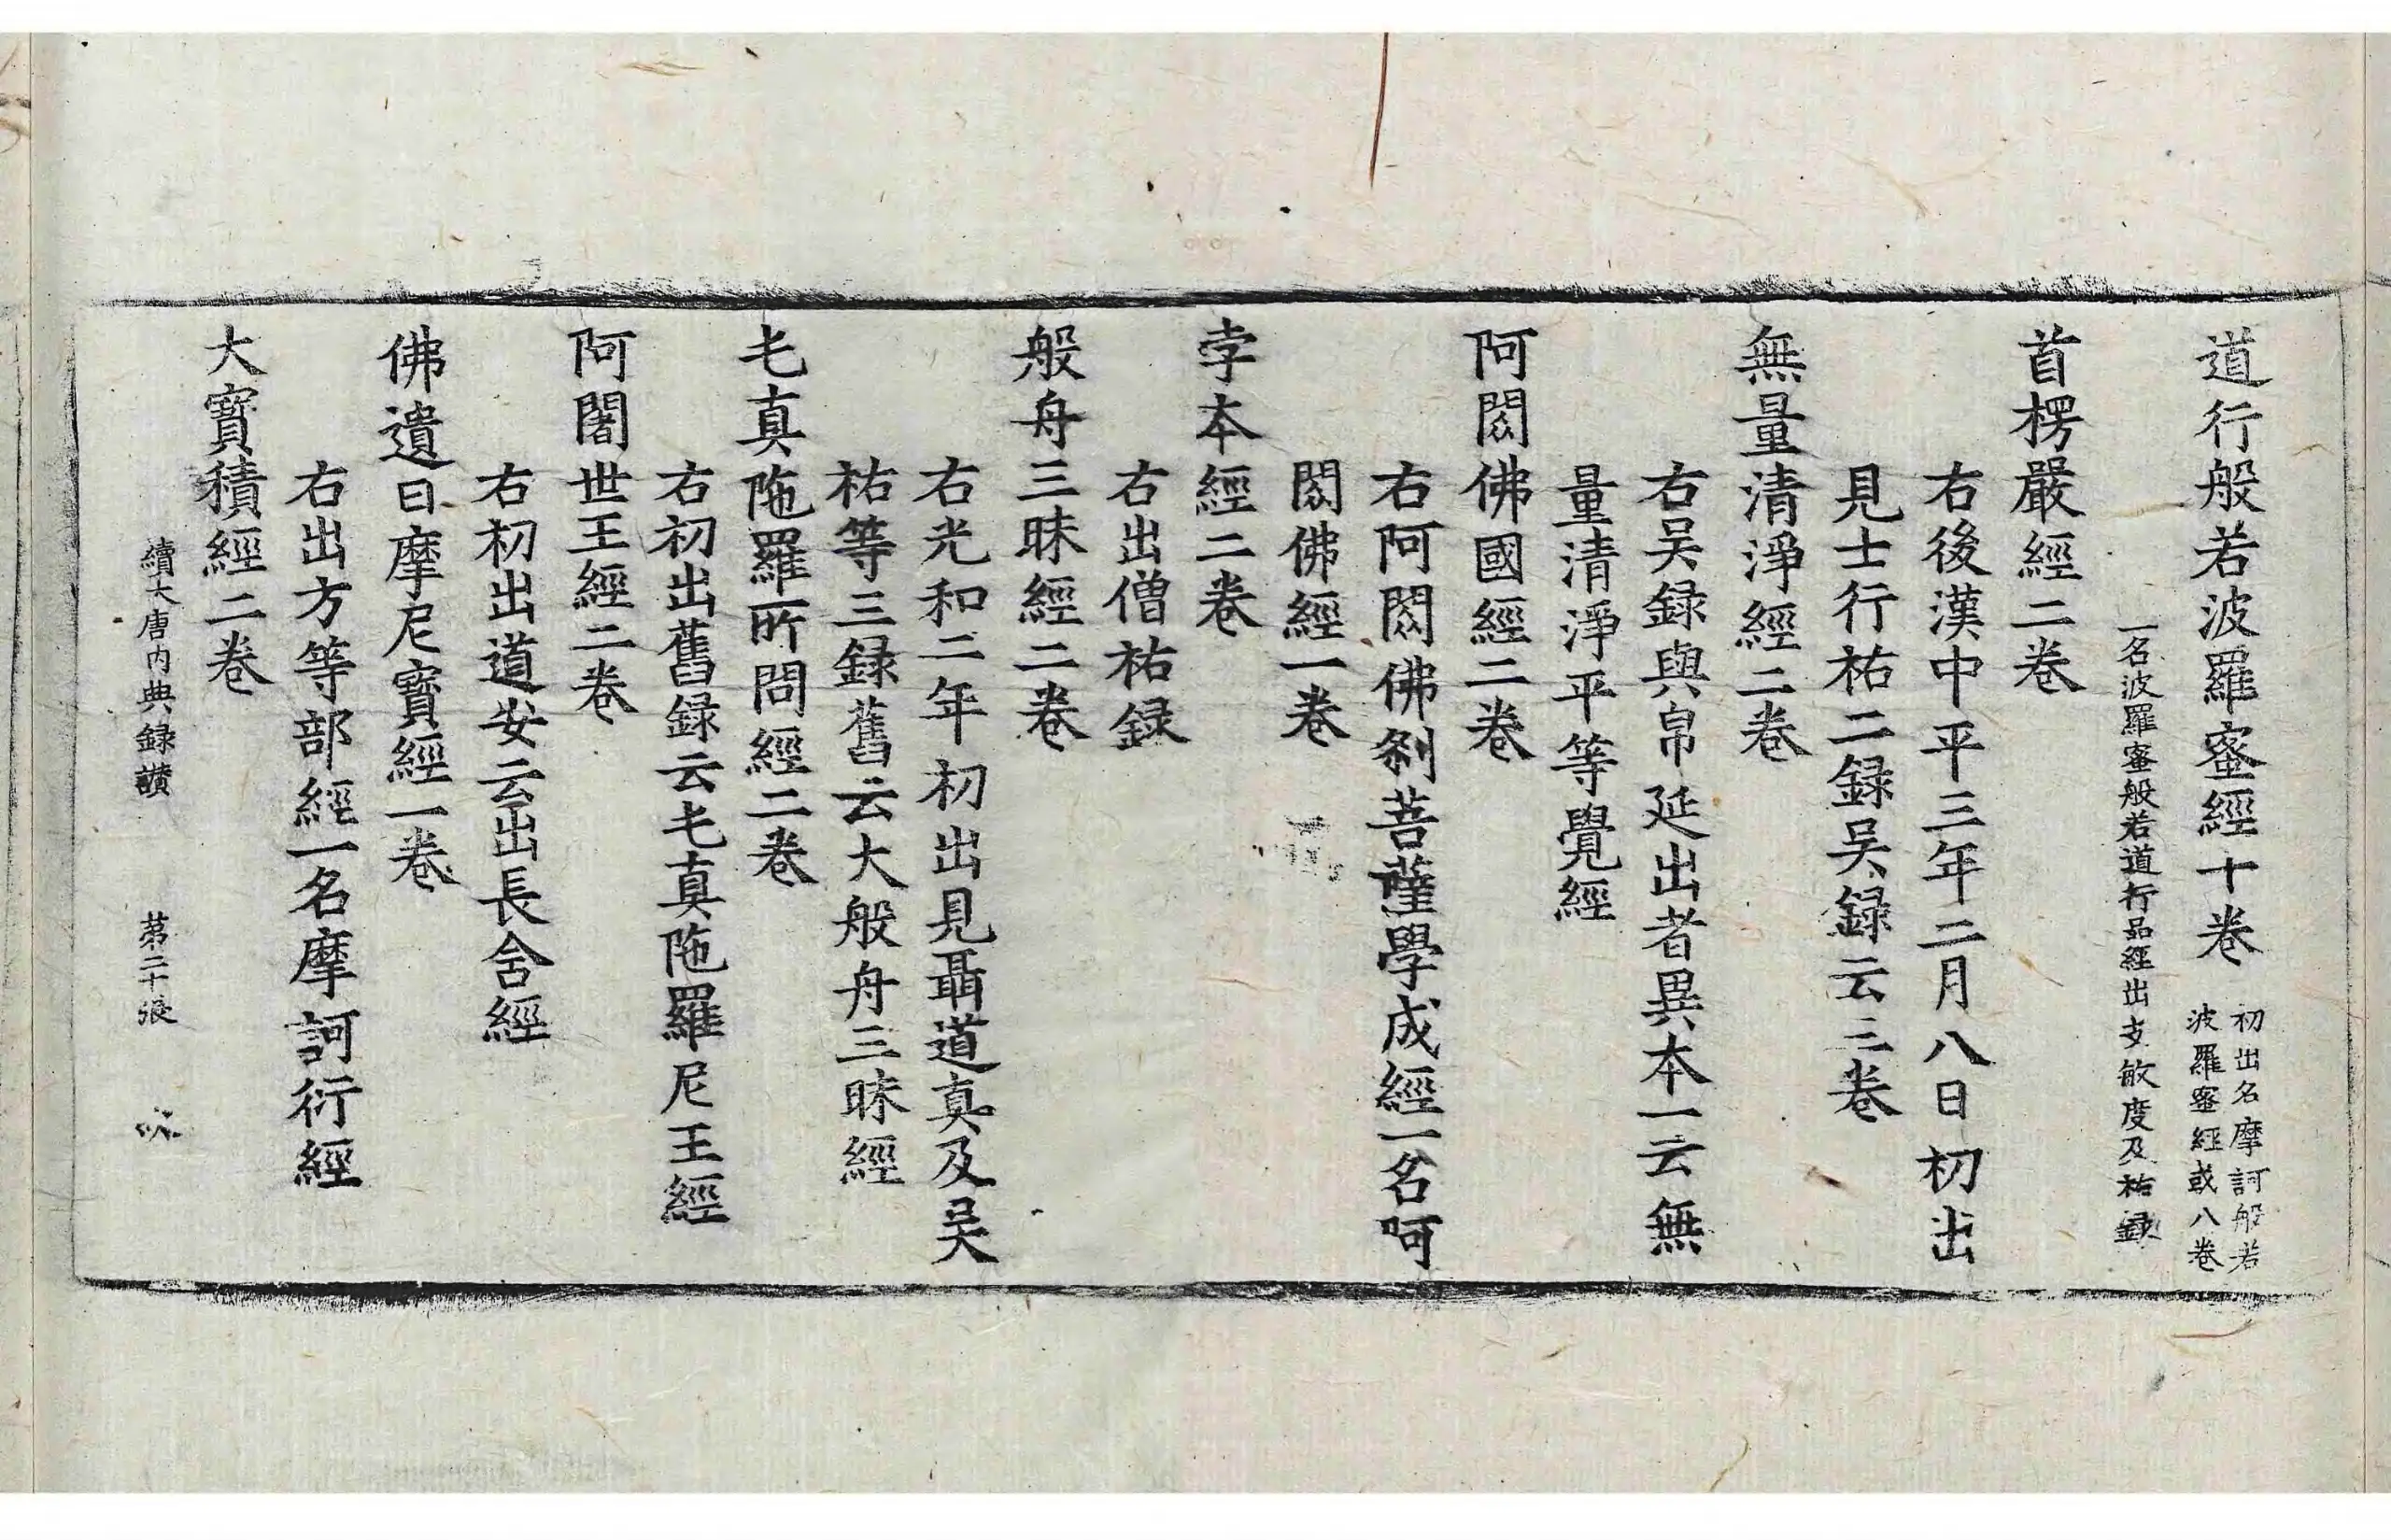 道行般若波羅蜜經十卷
初出名摩訶般若
波羅蜜經或八卷
一名波羅蜜般若道行品經出支敏度及祐録
首楞嚴經二卷
右後漢中平三年二月八日初出
見士行祐二録吴録云三卷
無量清淨經二卷
右吴録與帛延出者異本一云無
量清淨平等覺經
阿閦佛國經二卷
右阿閦佛刹菩薩學成經一名阿
閦佛經一卷
孛本經二卷
右出僧祐録
般舟三昧經二卷
右光和二年初出見聶道真及吴
祐等三録舊云大般舟三昧經
乇真陁羅所問經二卷
右初出舊録云乇真陁羅尼王經
阿闍世王經二卷
右初出道安云出長含經
佛遺曰摩尼寳經一卷
右出方等部經一名摩訶衍經
大寳積經二卷
續大唐内典録讃
苐二十張